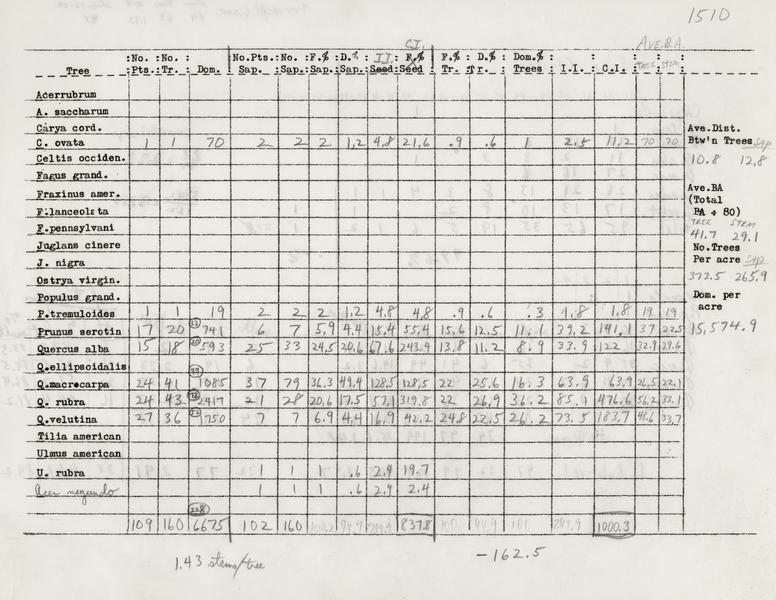 1510
AVE.B.A.
CI.
No. No. No.Pts. No. F.% D.% I.I. F.% F.% D.% Dom.% TREE STEM
Tree Pts. Tr. Dom. Sap. Sap. Sap. Sap. Seed Seed Tr. Tr. Trees I.I. C.I.
Acerrubrum
A. saccharum
Carya cord.
Ave.Dist.
C. ovata 1 1 70 2 2 2 1.2 4.8 21.6 .9 .6 1 2.5 11.2 70 70 Btw'n Trees Sap
Celtis occiden. 10.8 12.8
Fagus grand.
Ave.BA
Fraxinus amer. (Total
F.lanceolata BA ÷ 80)
TREE STEM
F.pennsylvani 41.7 29.1
No.Trees
Juglans cinere Per acre Sap
J. nigra
Ostrya virgin. 373.5 265.9
Populus grand. Dom. per
P.tremuloides 1 1 19 2 2 2 1.2 4.8 4.8 .9 .6 .3 1.8 1.8 19 19 acre
Prunus serotin 17 20 741 6 7 5.9 4.4 15.4 55.4 15.6 12.5 11.1 39.2 141.1 37 22.5 15,574.9
Quercus alba 15 18 20 593 25 33 24.5 20.6 67.6 243.4 13.8 11.2 8.9 33.9 122 32.9 29.6
Q.ellipscidalis
Q.macrocarpa 24 41 49 1085 37 79 36.3 49.4 128.5 128.5 22 25.6 16.3 63.9 63.9 26.5 22.1
Q. rubra 24 43 2417 21 28 20.6 17.5 57.1 319.8 22 26.9 36.2 85.1 476.6 56.2 33.1
Q.velutina 27 36 52 1750 7 7 6.9 4.4 16.9 42.2 24.8 22.5 26.2 73.5 183.7 48.6 33.7
Tilia american
Ulmus american
U. rubra 1 1 1 .6 2.4 19.7
Acer negundo 1 1 1 .6 2.4 2.4
228
109 160 6675 102 160 100.2 99.9 299.9 837.8 100 99.9 100 299.9 1000.3
1.43 stems/tree -162.5